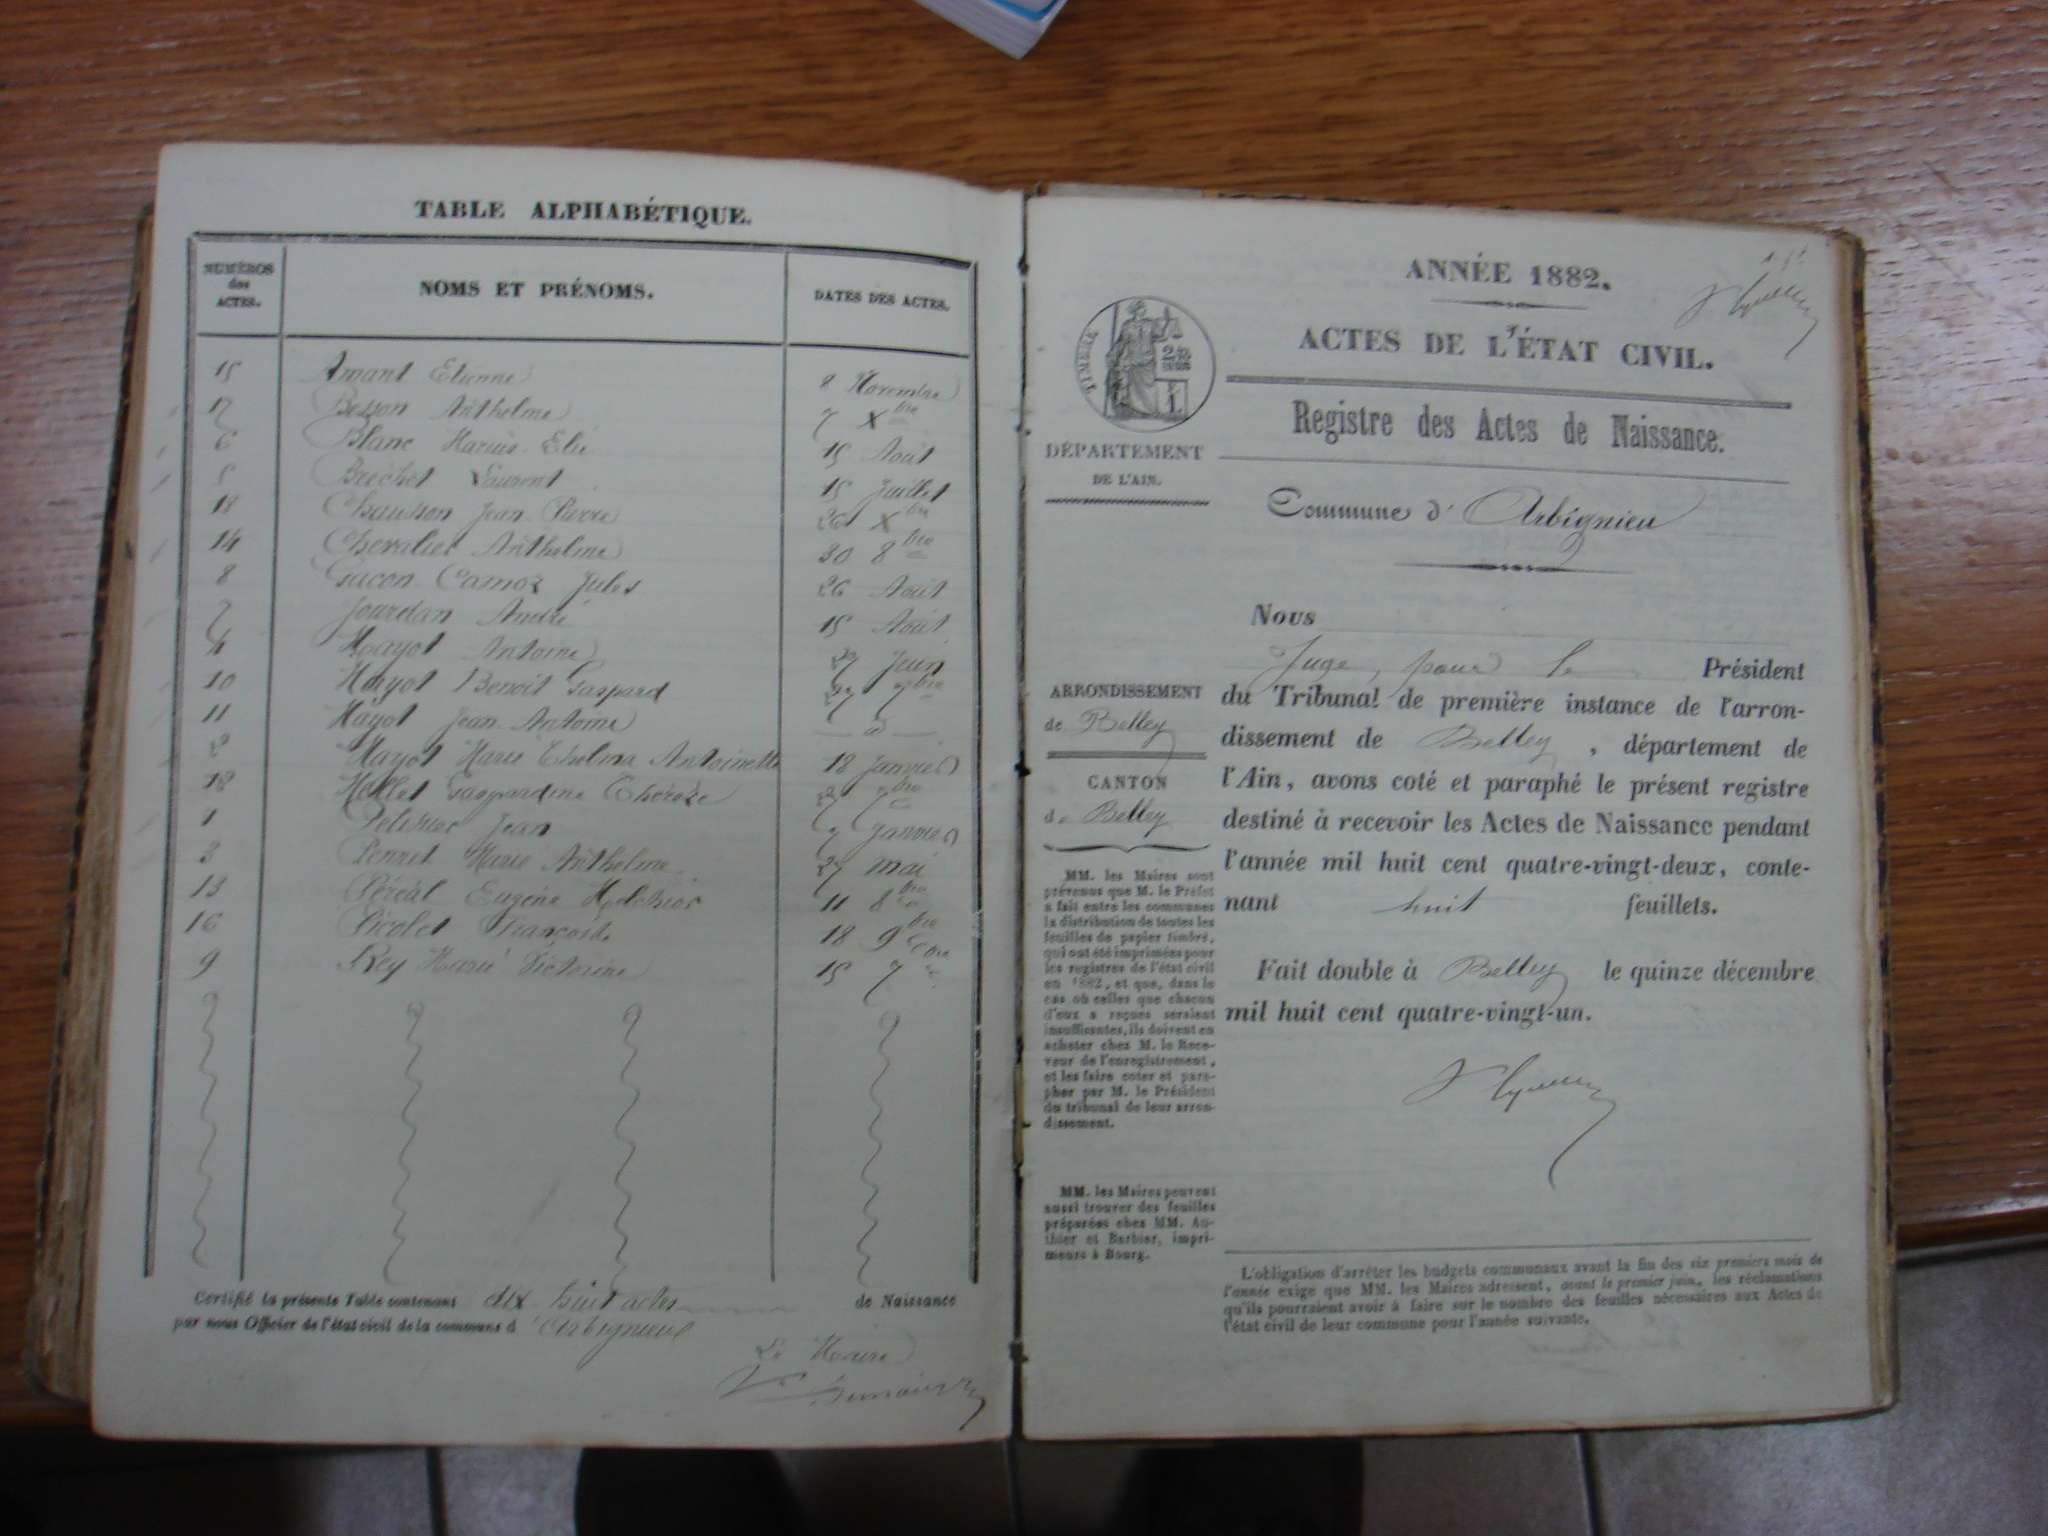 TABLE ALPHABÉTIQUE.
NUMÉROS
des
ACTES.
NOMS ET PRÉNOMS.
DATES DES ACTES.
15 Amant Etienne 8 Novembre
17 Besson Anthelme 7 Xbre
6 Blanc Marius Elie 15 Août
5 Brechet Laurent 15 Juillet
18 Chausson Jean Pierre 26 Xbre
14 Chevalier Anthelme 30 8bre
8 Gacon Camoz Jules 26 Août
7 Jourdan André 15 Août
4 Mayot Antoine 27 Juin
10 Mayot Benoit Gaspard 27 7bre
11 Mayot Jean Antoine d
2 Mayot Marie Antoinette 18 Janvier
12 Mollet Gaspardine Thérèze 7bre
1 Jean 7 Janvier
3 Marie Anthelme 27 mai
13 Eugène Melchior 11 8bre
16 Picolet 18 9bre
9 Rey Marie Victorine 15 7bre
Certifié la présente Table contenant dix huit actes de Naissance
par nous Officier de l'état civil de la commune d'Arbignieu
Le Maire
ANNÉE 1882.
ACTES DE L'ÉTAT CIVIL.
Registre des Actes de Naissance.
Commune d'Arbignieu
DÉPARTEMENT
DE L'AIN.
ARRONDISSEMENT
de Belley
CANTON
de Belley
MM. les Maires sont
prévenus que M. le Préfet
a fait entre les communes
la distribution de toutes les
feuilles de papier timbré,
qui ont été imprimées pour
les registres de l'état civil
en 1882, et que, dans le
cas où celles que chacun
d'eux a reçues seraient
insuffisantes, ils doivent en
acheter chez M. le Rece-
veur de l'enregistrement,
et les faire coter et para-
pher par M. le Président
du tribunal de leur arron-
dissement.
MM. les Maires peuvent
aussi trouver des feuilles
préparées chez MM. Au-
thier et Barbier, impri-
meurs à Bourg.
Nous
Juge, pour le Président
du Tribunal de première instance de l'arron-
dissement de Belley, département de
l'Ain, avons coté et paraphé le présent registre
destiné à recevoir les Actes de Naissance pendant
l'année mil huit cent quatre-vingt-deux, conte-
nant huit feuillets.
Fait double à Belley le quinze décembre
mil huit cent quatre-vingt-un.
L'obligation d'arrêter les budgets communaux avant la fin des six premiers mois de
l'année exige que MM. les Maires adressent, avant le premier juin, les réclamations
qu'ils pourraient avoir à faire sur le nombre des feuilles nécessaires aux Actes de
l'état civil de leur commune pour l'année suivante.